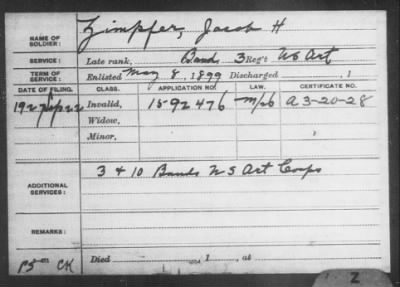 NAME OF SOLDIER: Zimpfer, Jacob H
SERVICE: Late rank, Band 3 Reg't US Art
TERM OF SERVICE: Enlisted May 8, 1899 Discharged , 1
DATE OF FILING. CLASS. APPLICATION NO. LAW. CERTIFICATE NO.
1927 Sep. 22 Invalid, 1592476 A 3-20-28
Widow,
Minor,
ADDITIONAL SERVICES: 3 & 10 Bands US Art Corps
REMARKS:
Died , 1 , at
CK
Z